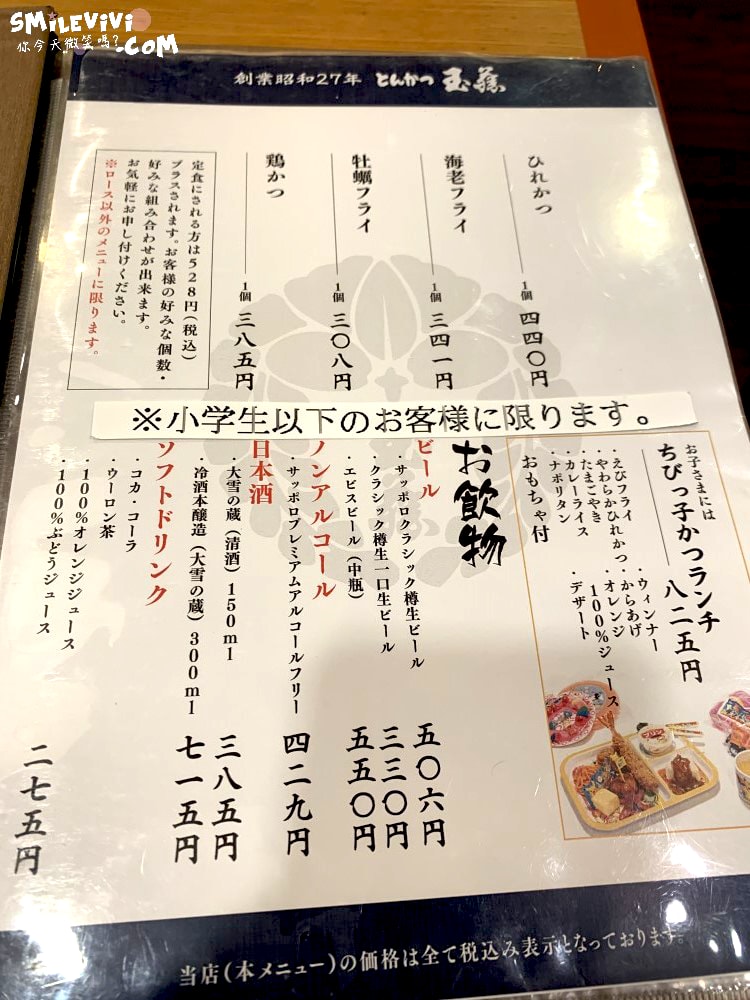 SMiLEViVi
你今天微笑嗎?
.COM
創業昭和27年 とんかつ 玉藤
ひれかつ 1個 四四〇円
海老フライ 1個 三四一円
牡蠣フライ 1個 三〇八円
鶏かつ 1個 三八五円
定食にされる方は528円(税込)
プラスされます。お客様の好みな個数・
好みな組み合わせが出来ます。
お気軽にお申し付けください。
※ロース以外のメニューに限ります。
※小学生以下のお客様に限ります。
お子さまには
ちびっ子かつランチ 八二五円
・えびフライ ・ウィンナー
・やわらかひれかつ ・からあげ
・たまごやき ・オレンジ
・カレーライス 100%ジュース
・ナポリタン ・デザート
おもちゃ付
お飲物
ビール
・サッポロクラシック樽生ビール 五〇六円
・クラシック樽生一口生ビール 三三〇円
・エビスビール(中瓶) 五五〇円
ノンアルコール
・サッポロプレミアムアルコールフリー 四二九円
日本酒
・大雪の蔵(清酒)150ml 三八五円
・冷酒本醸造(大雪の蔵)300ml 七一五円
ソフトドリンク
・コカ・コーラ
・ウーロン茶
・100%オレンジジュース
・100%ぶどうジュース 二七五円
当店(本メニュー)の価格は全て税込み表示となっております。